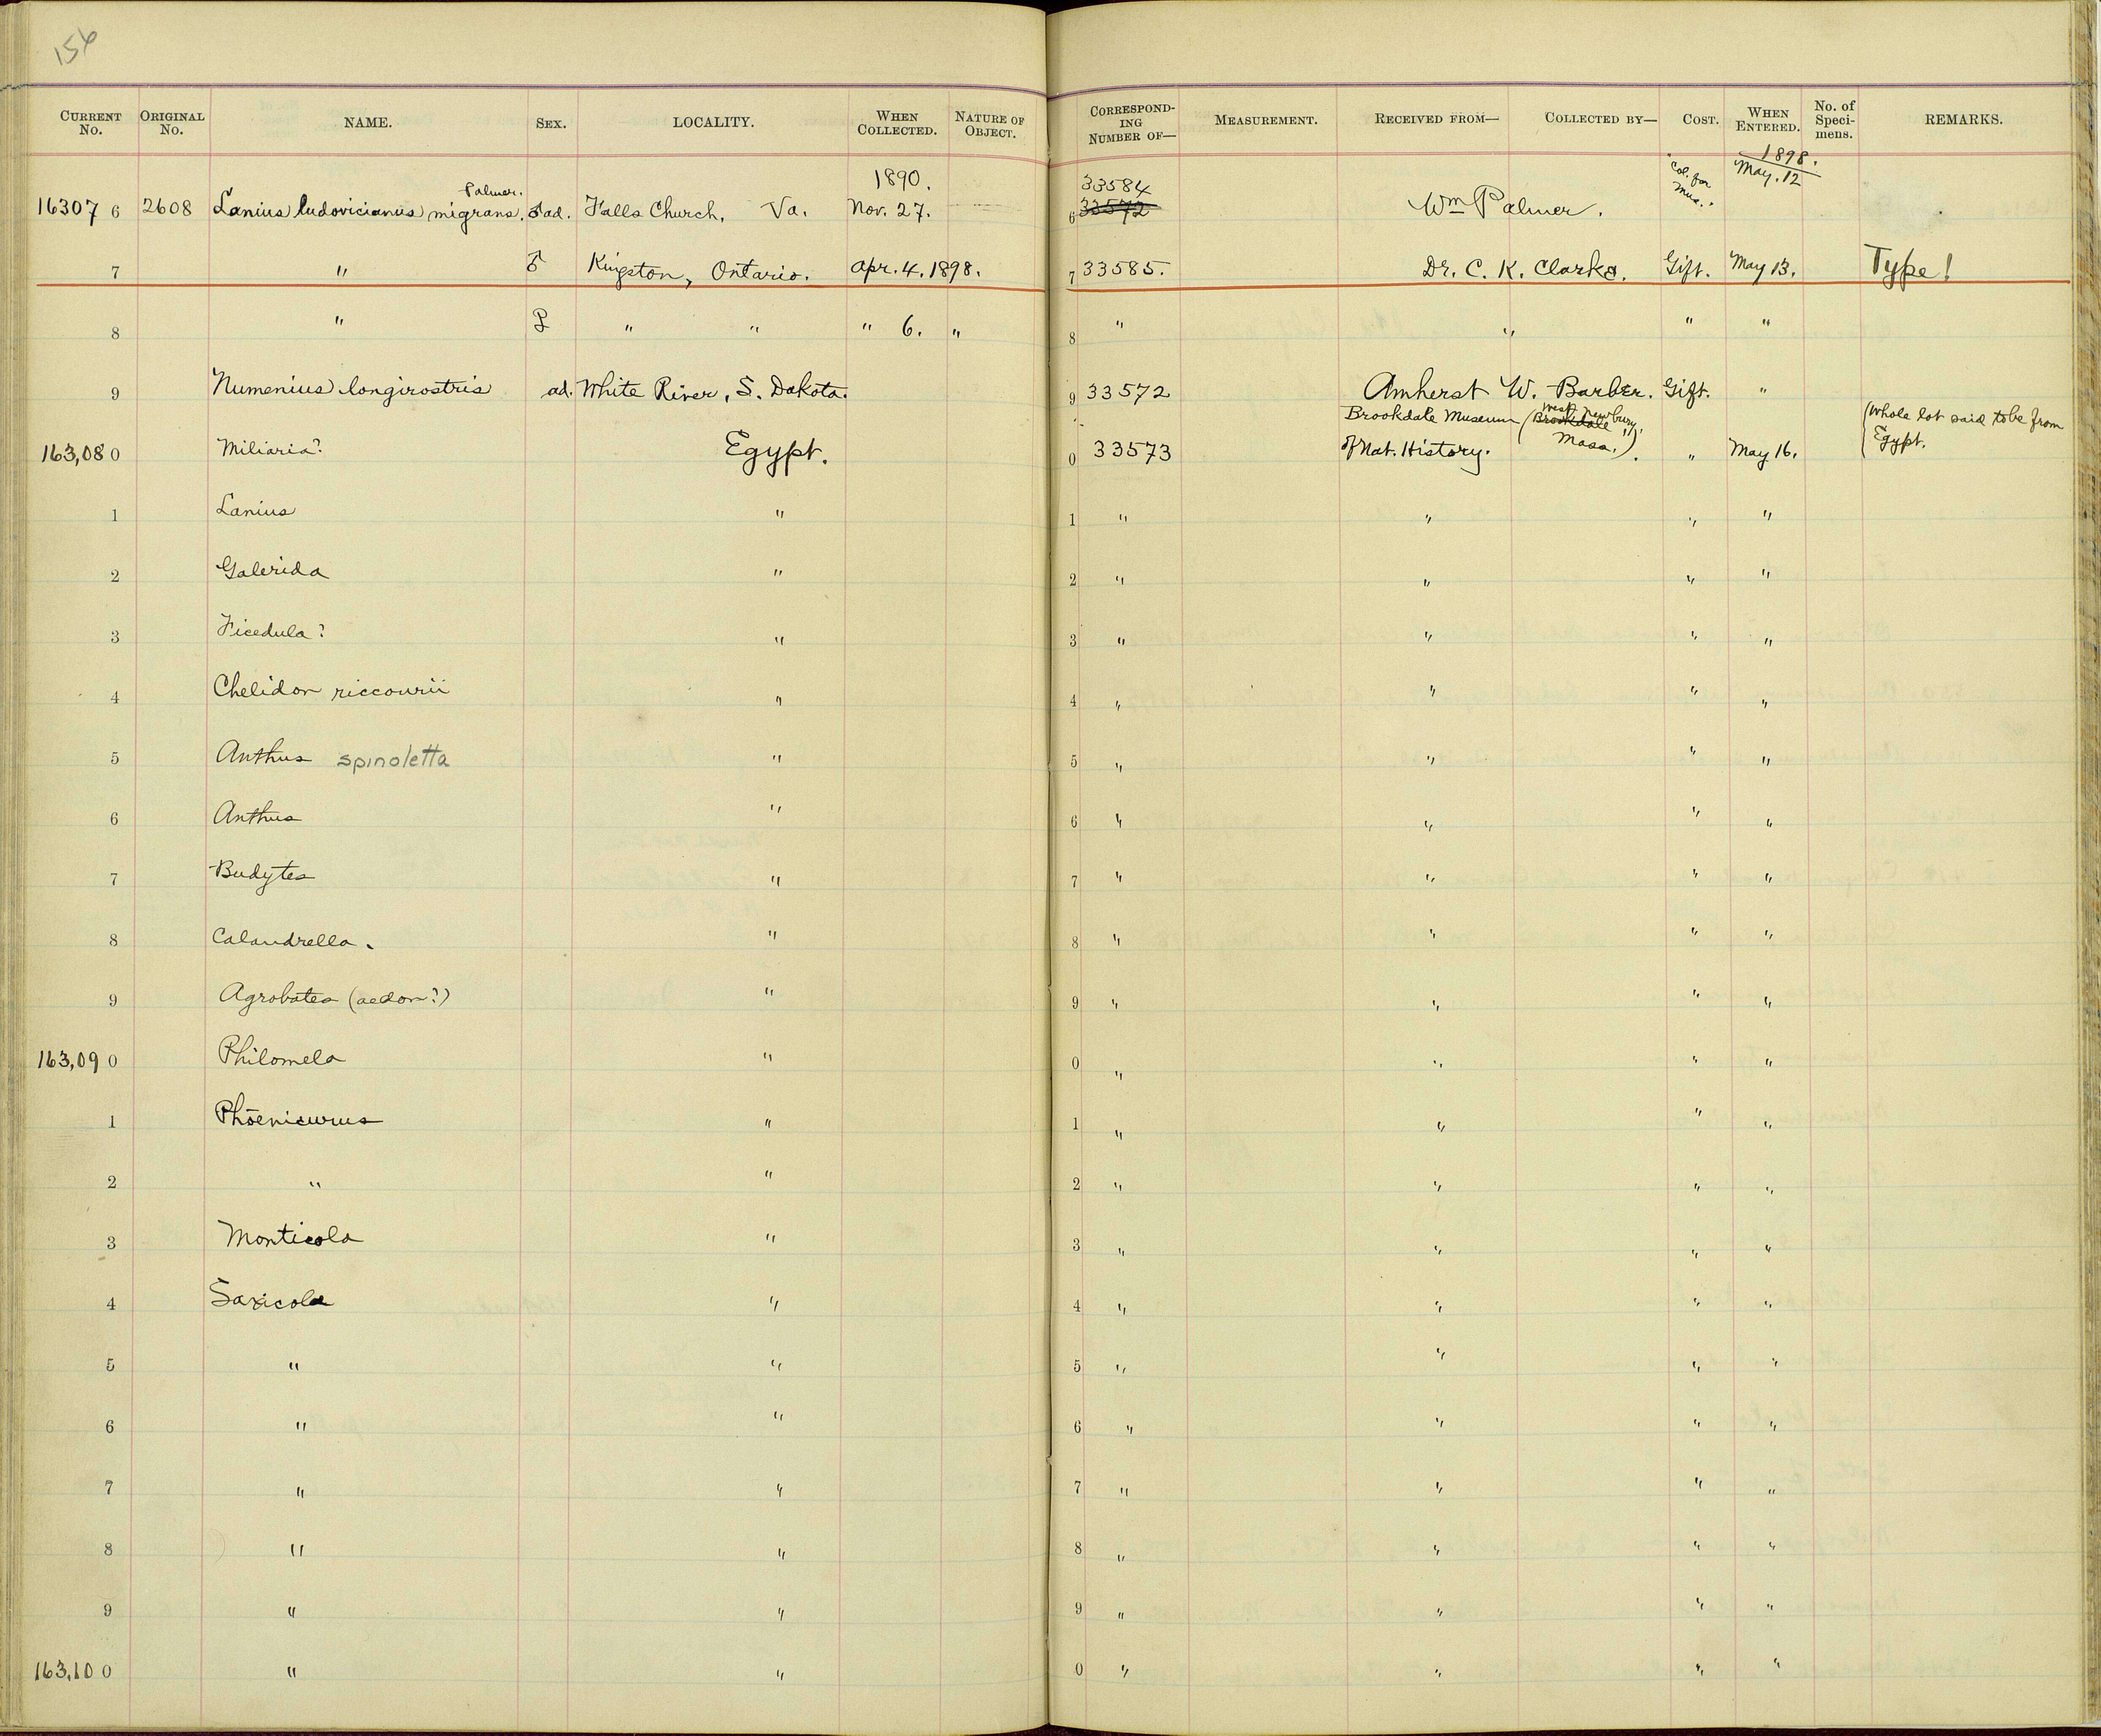 156
CURRENT No. ORIGINAL No. NAME. SEX. LOCALITY. WHEN COLLECTED. NATURE OF OBJECT. CORRESPONDING NUMBER OF— MEASUREMENT. RECEIVED FROM— COLLECTED BY— COST. WHEN ENTERED. No. of Specimens. REMARKS.
1890. 1898.
Palmer. 33584 "Col. for Mus." May. 12
16307 6 2608 Lanius ludovicianus migrans. ♂ ad. Falls Church, Va. Nov. 27. 6 33572 Wm Palmer.
7 " ♂ Kingston, Ontario. Apr. 4. 1898. 7 33585. Dr. C. K. Clarke. Gift. May 13. Type!
8 " ♀ " " " 6. " 8 " " " "
9 Numenius longirostris ad. White River, S. Dakota. 9 33572 Amherst W. Barber. Gift. "
Brookdale Museum (Brookdale West Newbury, (Whole lot said to be from
163,08 0 Miliaria? Egypt. 0 33573 of Nat. History. Mass.). " May 16. Egypt.
1 Lanius " 1 " " " "
2 Galerida " 2 " " " "
3 Ficedula? " 3 " " " "
4 Chelidon riccourii " 4 " " " "
5 Anthus spinoletta " 5 " " " "
6 Anthus " 6 " " " "
7 Budytes " 7 " " " "
8 Calandrella. " 8 " " " "
9 Agrobates (aedon?) " 9 " " " "
163,09 0 Philomela " 0 " " " "
1 Phoenicurus " 1 " " " "
2 " " 2 " " " "
3 Monticola " 3 " " " "
4 Saxicola " 4 " " " "
5 " " 5 " " " "
6 " " 6 " " " "
7 " " 7 " " " "
8 " " 8 " " " "
9 " " 9 " " " "
163,10 0 " " 0 " " " "